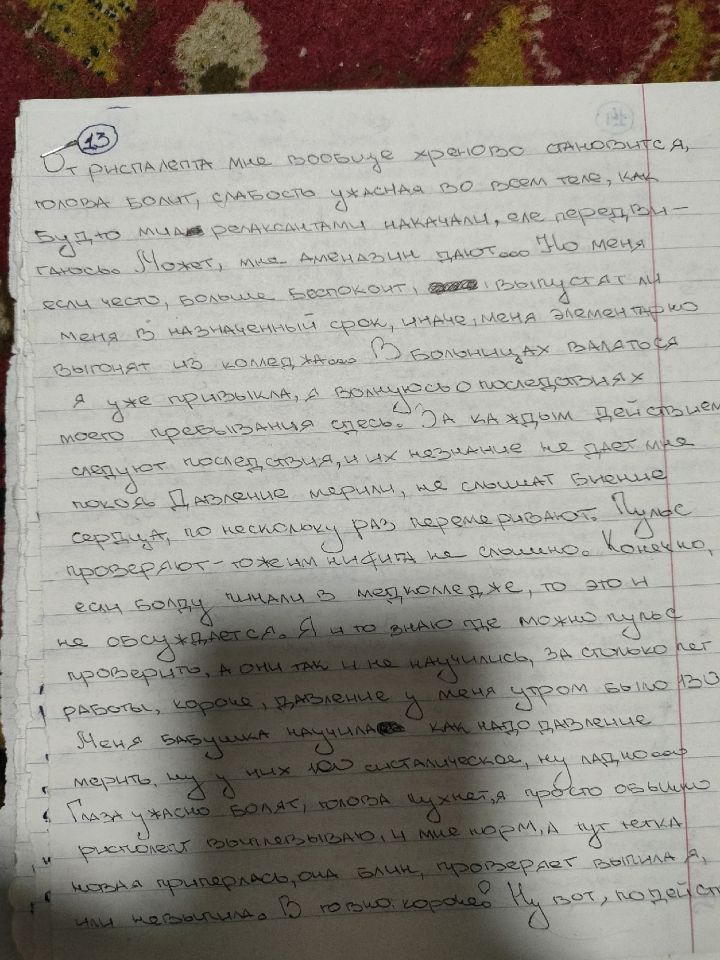 13
От риспалепта мне вообще хреново становится,
голова болит, слабость ужасная во всем теле, как
будто миа релаксантами накачали, еле передви-
гаюсь. Может, мне аменазин дают... Но меня
если често, больше беспокоит, выпустят ли
меня в назначенный срок, иначе, меня элементарно
выгонят из колледжа... В больницах валяться
я уже привыкла, я волнуюсь о последствиях
моего пребывания сдесь. За каждым действием
следуют последствия, и их незнание не дает мне
покоя. Давление мерили, не слышат биение
сердца, по нескольку раз перемеривают. Пульс
проверяют - тоже им нифига не слышно. Конечно,
если болду пинали в медколледже, то это и
не обсуждается. Я и то знаю где можно пульс
проверить, а они так и не научились, за столько лет
работы, короче, давление у меня утром было 130
Меня бабушка научила как надо давление
мерить, ну у них 100 систалическое, ну ладно...
Глаза ужасно болят, голова пухнет, я просто обычно
рисполепт выплевываю, и мне норм, а тут тетка
новая приперлась, она блин, проверяет выпила я,
или невыпила. В говно. короче. Ну вот, подейст